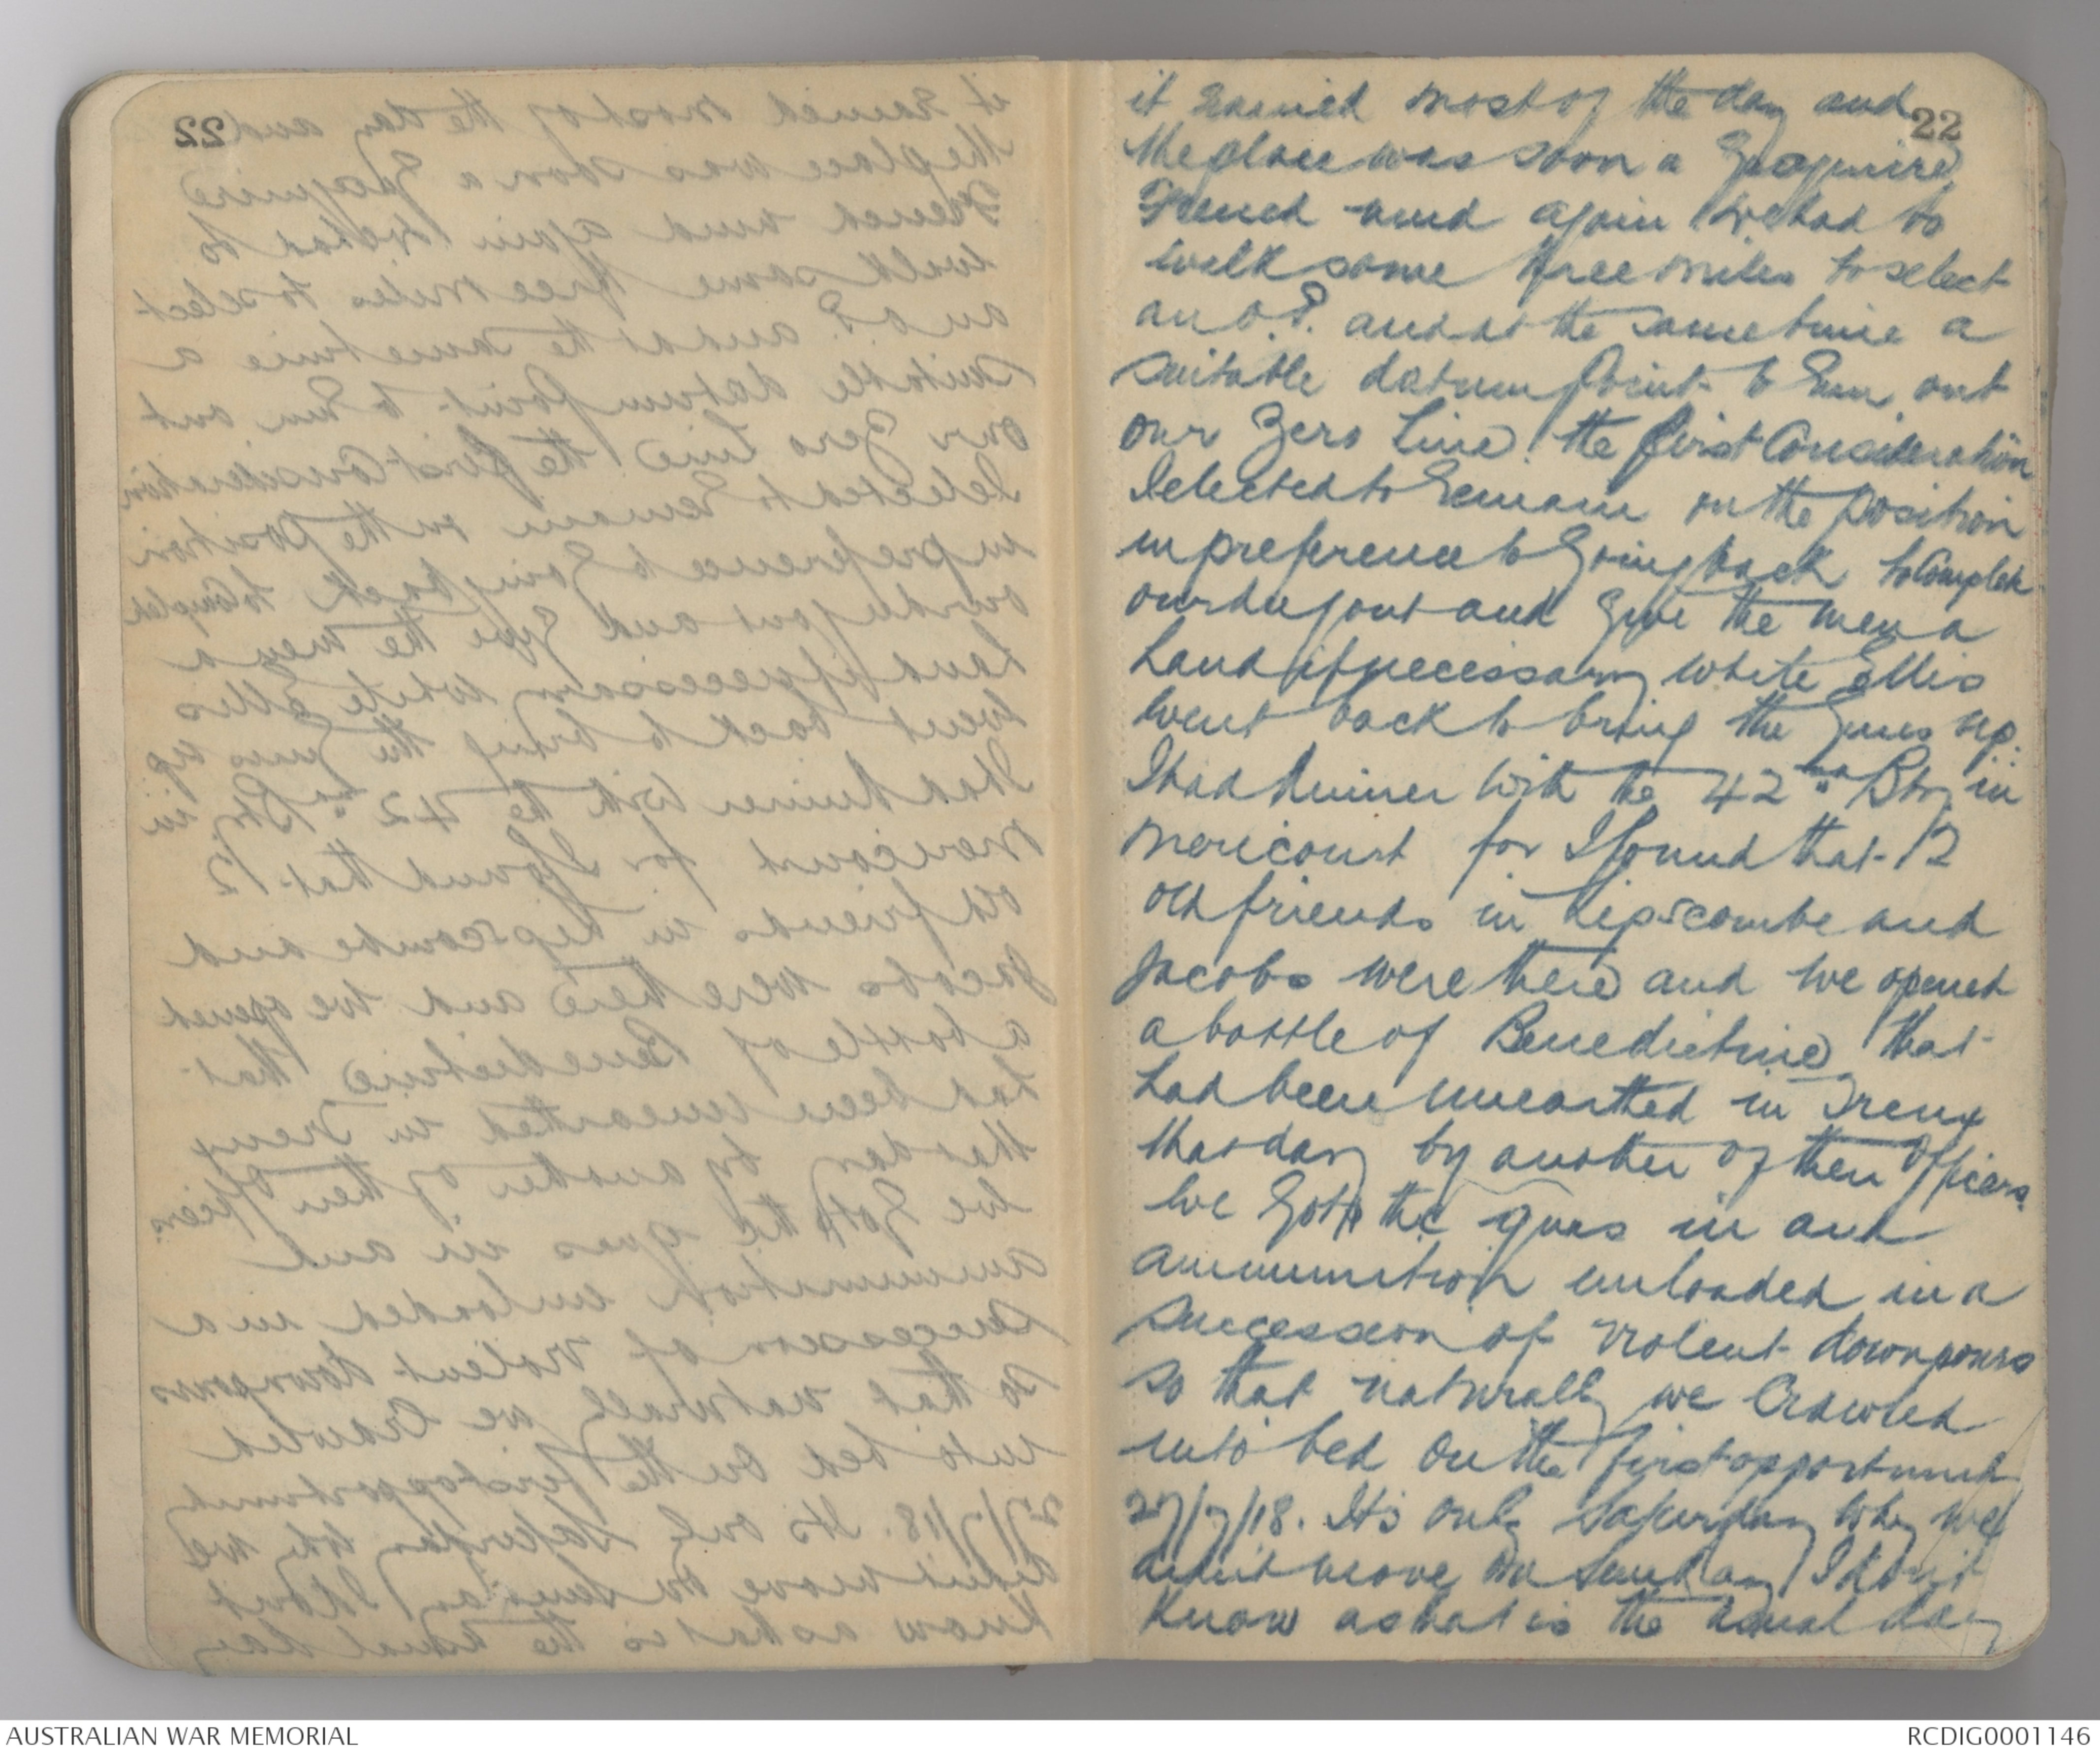 22
it rained most of the day and
the place was soon a quagmire
French mud again we had to
walk some three miles to select
an O.P. and at the same time a
suitable datum point to run out
our Zero Line. the first consideration
I elected to remain on the position
in preference to going back to complete
our dugout and give the men a
hand if necessary while Ellis
went back to bring the guns up.
I had dinner with the 42nd Bty in
Mericourt for I found that 12
old friends in Lipscombe and
Jacobs were there and we opened
a bottle of Benedictine that
had been unearthed in Treux
that day by another of their Officers.
We got the guns in and
ammunition unloaded in a
succession of violent downpours
so that naturally we crawled
into bed on the first opportunity
27/7/18. Its only Saturday why we
didn't move on Sunday I don't
know as that is the usual day
AUSTRALIAN WAR MEMORIAL
RCDIG0001146